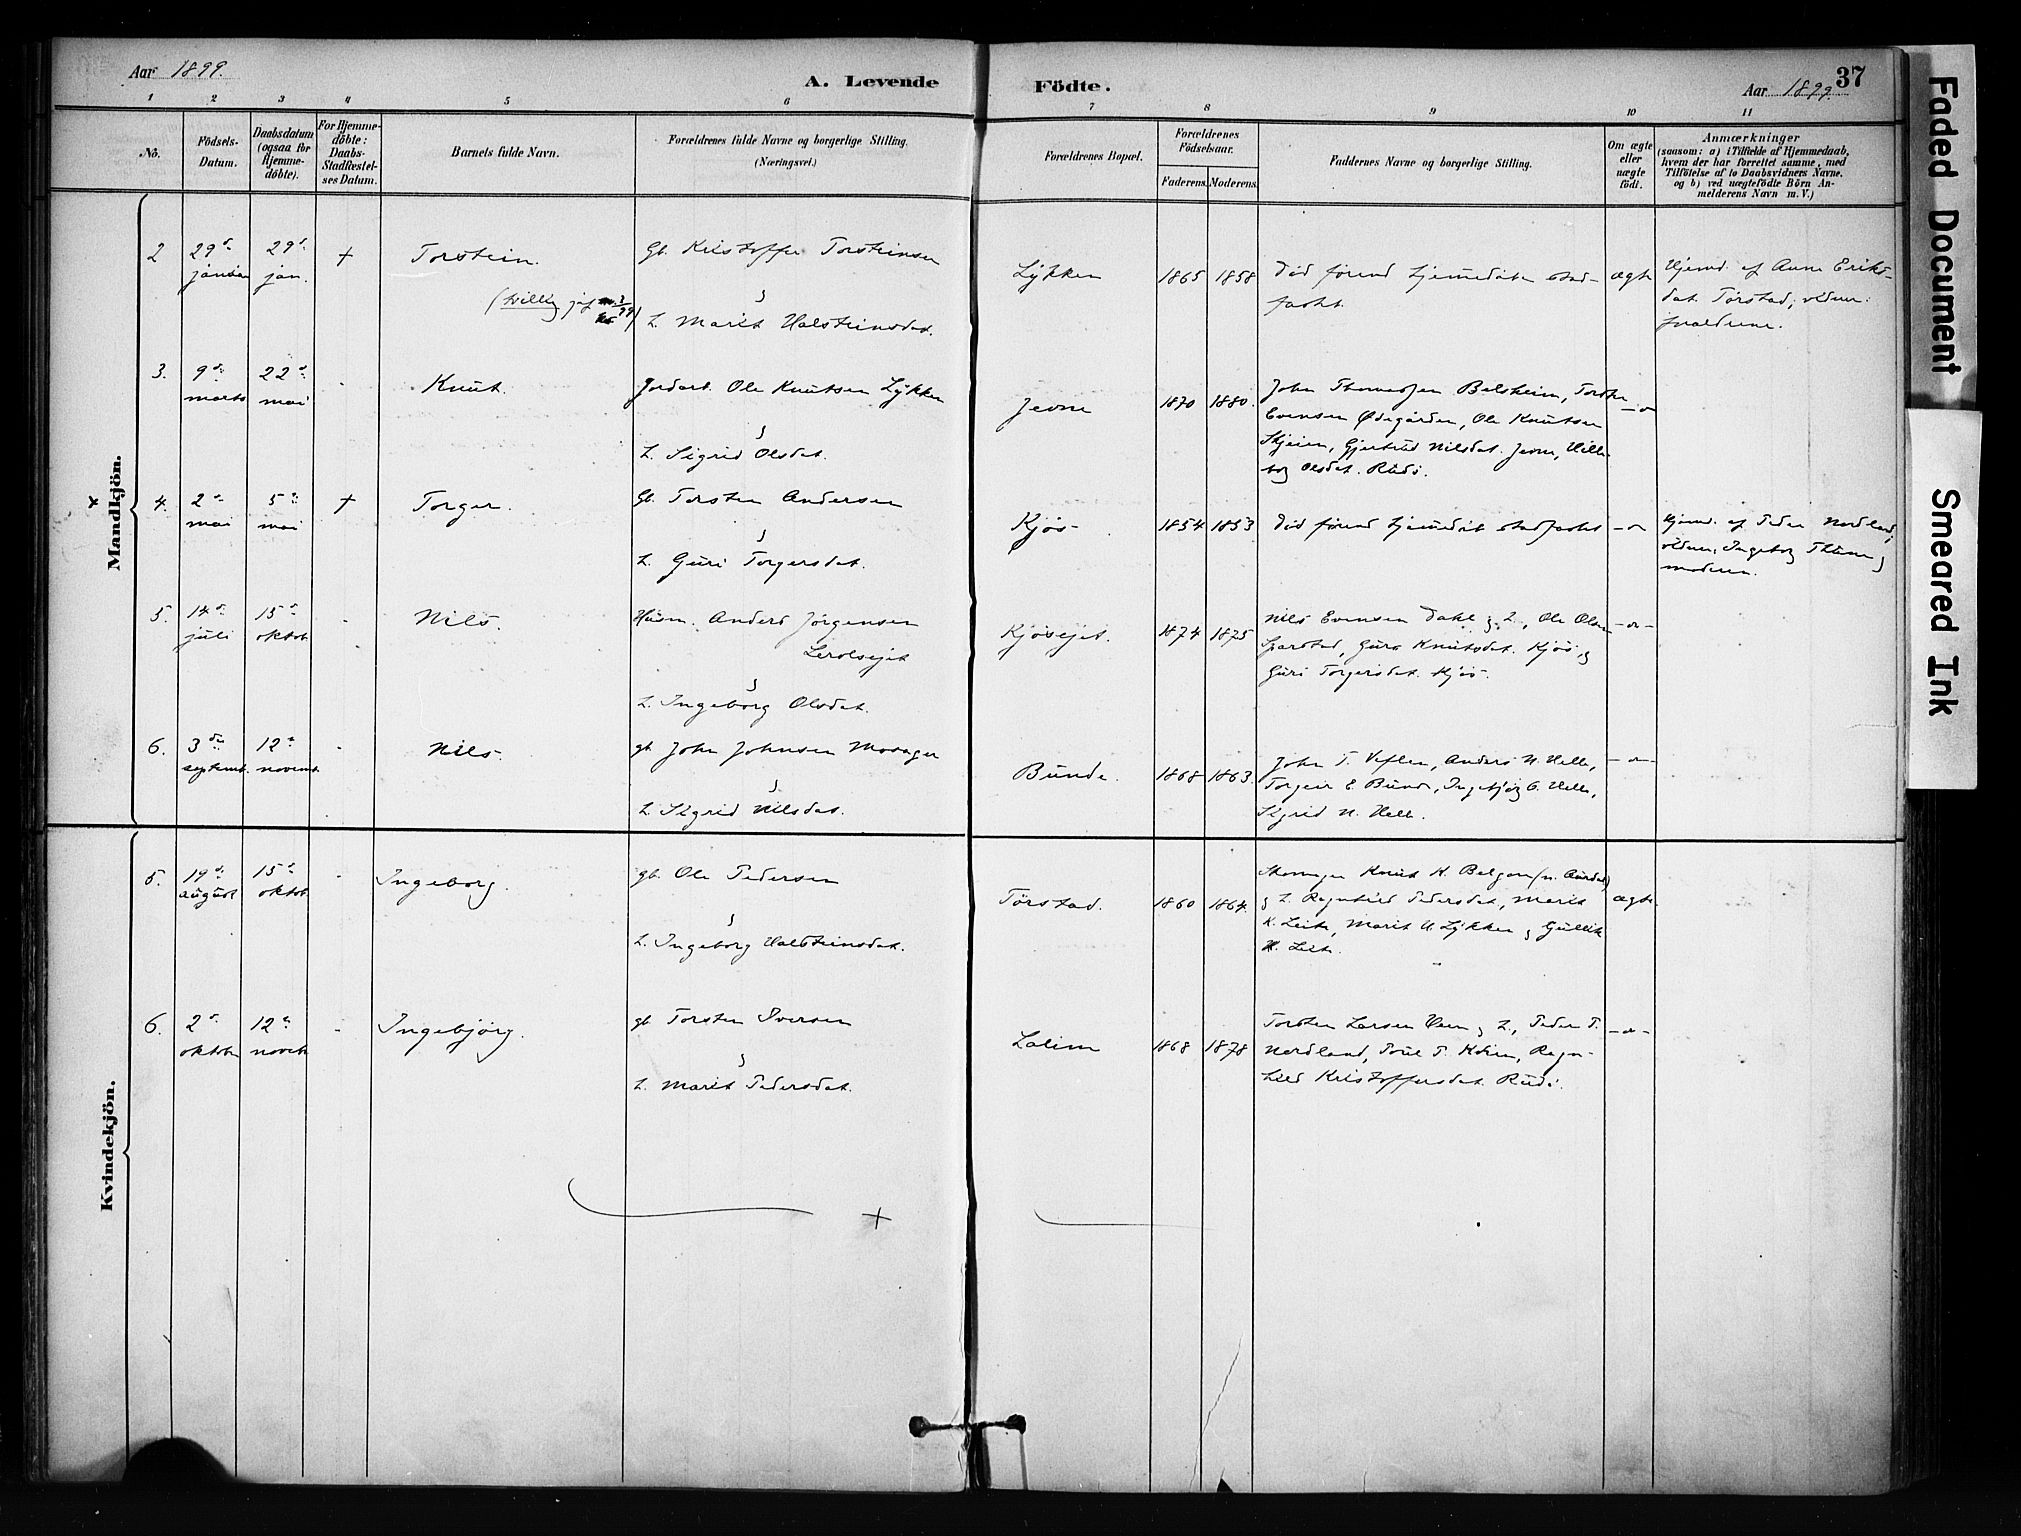 Aar 1899.
A. Levende
Födte.
Aar 1899.
37
1 2 3 4 5 6 7 8 9 10 11
No.
Födsels-
Datum.
Daabsdatum
(ogsaa for
Hjemme-
döbte).
For Hjemme-
döbte:
Daabs-
Stadfæstel-
ses Datum.
Barnets fulde Navn.
Forældrenes fulde Navne og borgerlige Stilling.
(Næringsvei.)
Forældrenes Bopæl.
Forældrenes
Födselsaar.
Faderens.
Moderens.
Faddernes Navne og borgerlige Stilling.
Om ægte
eller
uægte
födt.
Anmærkninger
(saasom: a) i Tilfælde af Hjemmedaab,
hvem der har forrettet samme, med
Tilföielse af to Daabsvidners Navne.
og b) ved uægtefödte Börn An-
melderens Navn m. V.)
Mandkjön.
2
29de
januar
29de
jan.
+
Torstein.
Gb. Kristoffer Torsteinsen
&
h. Marit Halsteinsdat.
Lykken
1865 1858
død førend hjemmedåben stad-
fæstet.
ægte
Hjemd. af Anne Eriks-
dat. Torstad; vidner:
forældrene.
3.
9de
marts
22de
mai
-
Knut.
Jordarb. Ole Knutsen Lykken
&
h. Sigrid Olsdat.
Jevne
1870 1880.
John Thomassen Belsheim, Torsten
Evensen Ødegården, Ole Knutsen
Skjeien, Gjertrud Nilsdat. Jevne, Ille-
borg Olsdat. Rudi.
-"-
x
4.
2den
mai
5te
mai
+
Torger.
Gb. Torsten Andersen
&
h. Guri Torgersdat.
Kjøs-
1854 1853
død førend hjemmedåb stadfæstet
-"-
Hjemd. af Peder Nordland,
vidner, Ingeborg Thune &
moderen.
5.
14de
juli
15de
oktob.
-
Nils.
Husm. Anders Jørgensen
&
h. Ingeborg Olsdat.
Kjøsejet.
1874 1875
Nils Evensen Dahl & h., Ole Olsen
Sparstad, Guro Knutsdat. Kjøs &
Guri Torgersdat. Kjøs.
-"-
6.
3de
septemb.
12te
novemb.
-
Nils.
gb. John Johnsen Mosager
&
h. Sigrid Nilsdat.
Bunde.
1868 1863.
John T. Veflen, Anders N. Helle,
Torgeir E. Bunde, Ingebjørg O. Helle,
Sigrid N. Helle.
-"-
Kvindekjön.
5.
19de
august
15de
oktob.
-
Ingeborg.
gb. Ole Pedersen
&
h. Ingeborg Halsteinsdat.
Tørstad.
1860 1864.
Knut K. Belgom (n. Aurdal)
& h. Ragnhild Pedersdat., Marit
K. Leite, Marit H. Lykken & Gullik
H. Leite.
ægte
6.
2den
oktober
12te
novemb.
-
Ingebjørg.
gb. Torsten Iversen
&
h. Marit Pedersdat.
Lalim
1868 1878
Torsten Larsen & h., Peder T.
Nordland, T. Kvien, Ragn-
hild Kristoffersdat. Rudi.
-"-
+
Faded Document
Smeared Ink